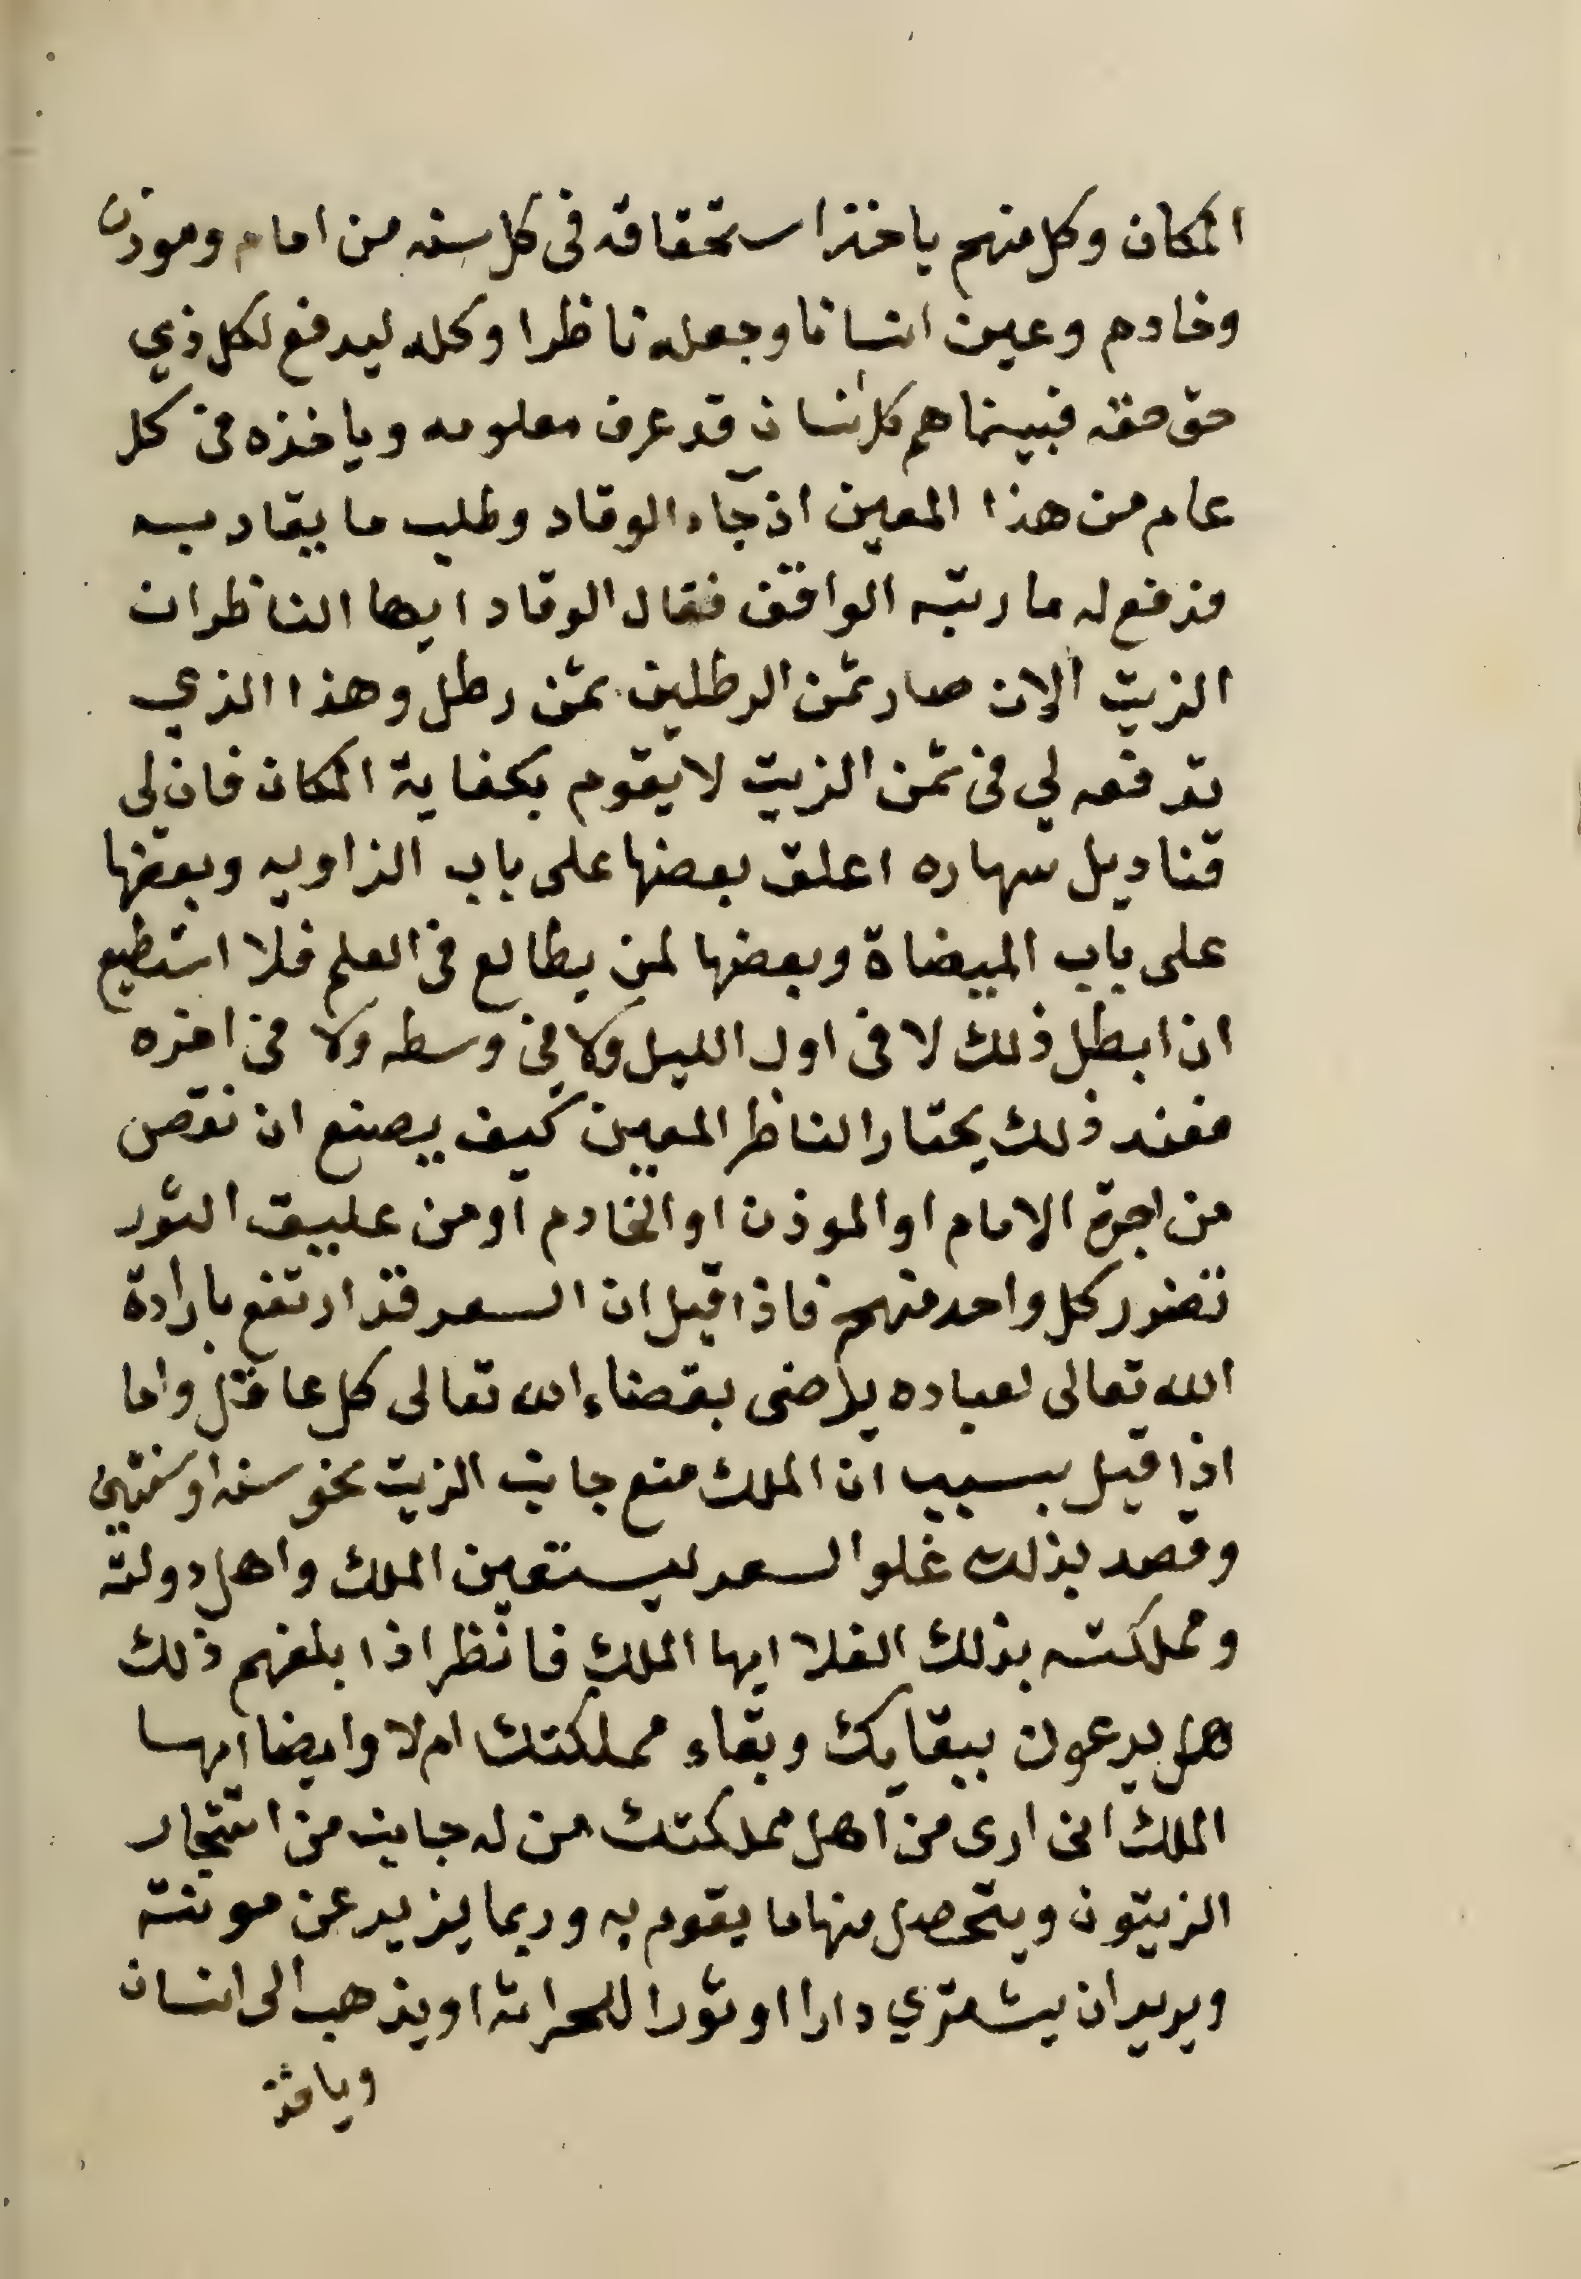 المكان وكل منهم ياخذ استحقاقه فى كل سنه من امام وموذن
وخادم وعين انسانا وجعله ناظرا وكله ليدفع لكل ذي
حق حقه فبينما هم كل انسان قد عرف معلومه وياخذه فى كل
عام من هذا المعين اذ جآء الوقاد وطلب ما يقاد به
فدفع له ما رتبه الواقف فقال الوقاد ايها الناظر ان
الزيت الان صار ثمن الرطلين بمن رطل وهذا الذي
تدفعه لي فى ثمن الزيت لا يقوم بكفاية المكان فان لى
قناديل سهاره اعلق بعضها على باب الزاويه وبعضها
على باب الميضاة وبعضها لمن يطالع فى العلم فلا استطيع
ان ابطل ذلك لا فى اول الليل ولا فى وسطه ولا فى اخره
فعند ذلك يحتار الناظر المعين كيف يصنع ان نقص
من اجرة الامام او الموذن او الخادم او من عليق الثور
تضرر كل واحد منهم فاذا قيل ان السعر قد ارتفع بارادة
الله تعالى لعباده يرضى بقضاء الله تعالى كل عاقل واما
اذا قيل بسبب ان الملك منع جانب الزيت نحو سنه او سنتين
وقصد بذلك غلو السعر ليستعين الملك واهل دولته
ومملكته بذلك الغلا ايها الملك فانظر اذا بلغهم ذلك
هل يدعون ببقايك وبقاء مملكتك ام لا وايضا ايها
الملك انى ارى من اهل مملكتك من له جانب من اشجار
الزيتون ويتحصل منها ما يقوم به وربما يزيد عن مونته
ويريد ان يشترى دارا او ثورا للحراثة او يذهب الى انسان
وياخذ